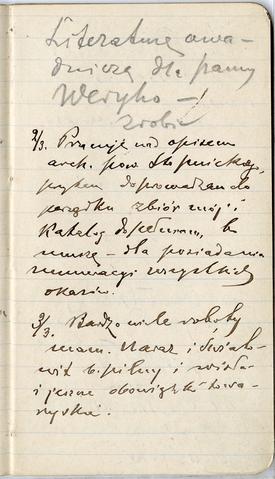 Literaturę owa-
dniczą dla panny
Weryho —
zrobić
2/3. Pracuję nad opisem
arch. pow. Stopnickiego,
przytem doprowadzam do
porządku zbiór mój i
Katalog dopełniam, bo
muszę — dla posiadania
numeracyi wszystkich
okazów.
3/3. Bardzo wiele roboty
mam. Naraz i Światowit
b. pilny i
i jeszcze obowiązki towa-
rzyskie.